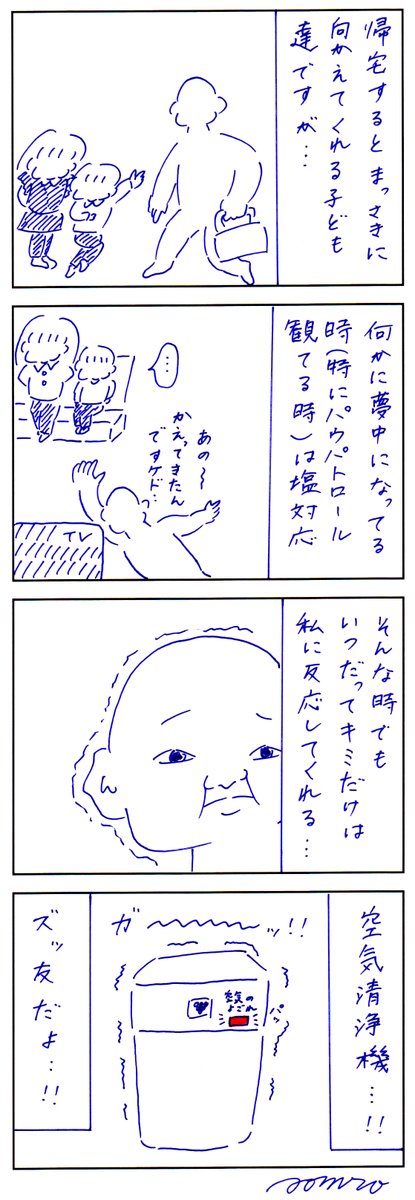 帰宅するとまっさきに
向かえてくれる子ども
達ですが…
何かに夢中になってる
時(特にパウパトロール
観てる時)は塩対応
…
あの〜〜
かえってきたん
ですケド…
TV
そんな時でも
いつだってキミだけは
私に反応してくれる…
空気清浄機…!!
ガ〜〜〜〜ッ!!
空気の
よごれ
パッ
ズッ友だよ…!!